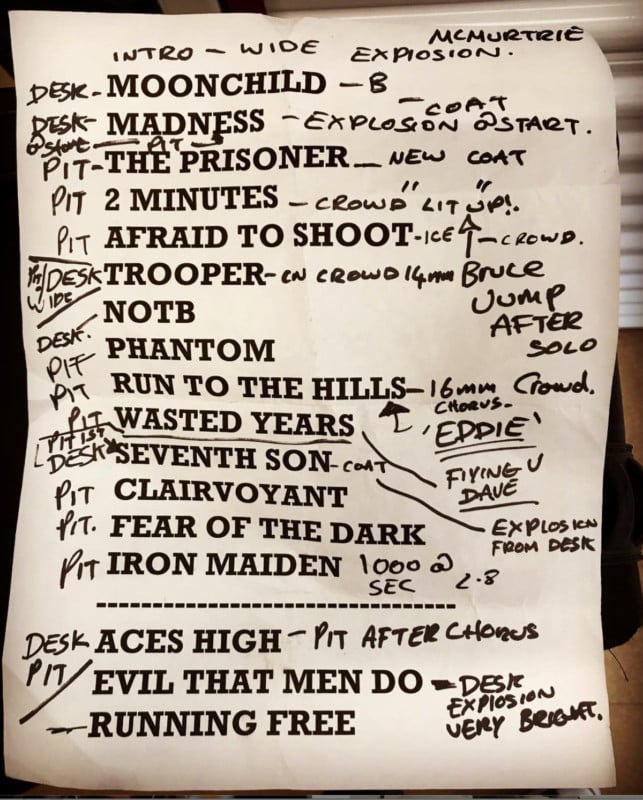 MCMURTRIE
INTRO - WIDE EXPLOSION.
DESK - MOONCHILD - B
- COAT
DESK - MADNESS - EXPLOSION @ START.
@ START - PIT
PIT - THE PRISONER - NEW COAT
PIT 2 MINUTES - CROWD "LIT UP"!.
PIT AFRAID TO SHOOT - ICE - CROWD.
PIT/DESK TROOPER - CROWD 14mm BRUCE
WIDE
NOTB JUMP
AFTER
DESK. SOLO
PIT PHANTOM
PIT RUN TO THE HILLS - 16mm CROWD.
CHORUS -
PIT WASTED YEARS 'EDDIE'
PIT 1ST
DESK SEVENTH SON - COAT
FLYING V
DAVE
PIT CLAIRVOYANT
PIT. FEAR OF THE DARK
EXPLOSION
FROM DESK
PIT IRON MAIDEN 1000 @
SEC 2.8
----------------------------------
DESK ACES HIGH - PIT AFTER CHORUS
PIT/ EVIL THAT MEN DO - DESK
EXPLOSION
- RUNNING FREE VERY BRIGHT.